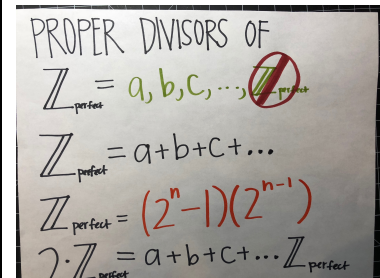 PROPER DIVISORS OF
ℤ perfect = a, b, c, ..., ℤ perfect
ℤ perfect = a+b+c+...
ℤ perfect = (2ⁿ-1)(2ⁿ⁻¹)
2·ℤ perfect = a+b+c+...ℤ perfect